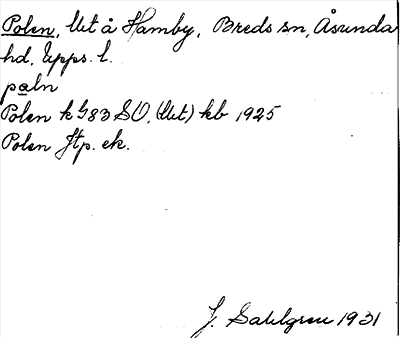 Polen, lht å Hamby, Breds sn, Åsunda
hd. Upps. l.
paln
Polen k G83 SV. (lht) kb 1925
Polen Jtp. ek.
J. Sahlgren 1931